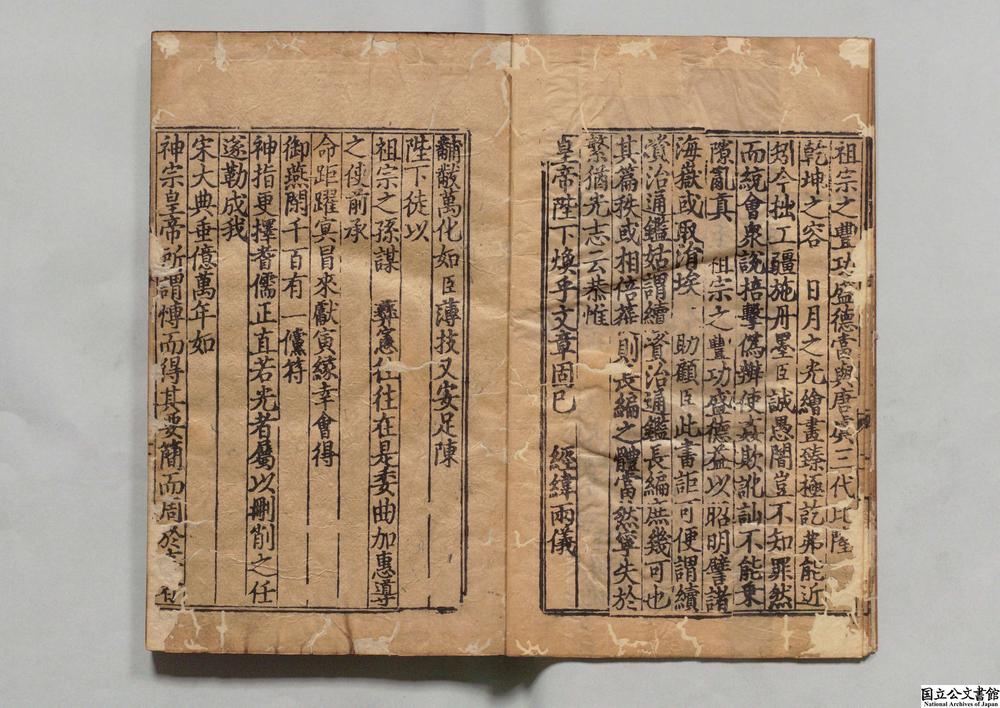 祖宗之豐功盛德當與唐虞三代比隆
乾坤之容　日月之光繪畫臻極訖弗能近
矧今拙工疆施丹墨臣誠愚闇豈不知罪然
而統會衆說掊擊僞辨使姦欺訛訕不能乗
隙亂真　祖宗之豐功盛德益以昭明譬諸
海嶽或取涓埃　助顧臣此書詎可便謂續
資治通鑑姑謂續　資治通鑑長編庶幾可也
其篇秩或相倍蓰　則長編之體當然寧失於
繁猶光志云恭惟
皇帝陛下煥乎文章固已　經緯兩儀
黼黻萬化如臣薄技又安足陳
陛下徒以
祖宗之孫謀　彝憲往往在是委曲加惠導
之使前承
命距躍冥冒來獻寅緣幸會得
御燕閒千百有一儻符
神指更擇耆儒正直若光者屬以刪削之任
遂勒成我
宋大典垂億萬年如
神宗皇帝所謂博而得其要簡而周於
国立公文書館
National Archives of Japan